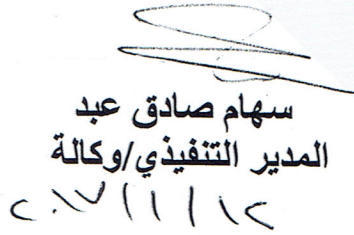 سهام صادق عبد
المدير التنفيذي/وكالة
٢٠١٧/١/١٢